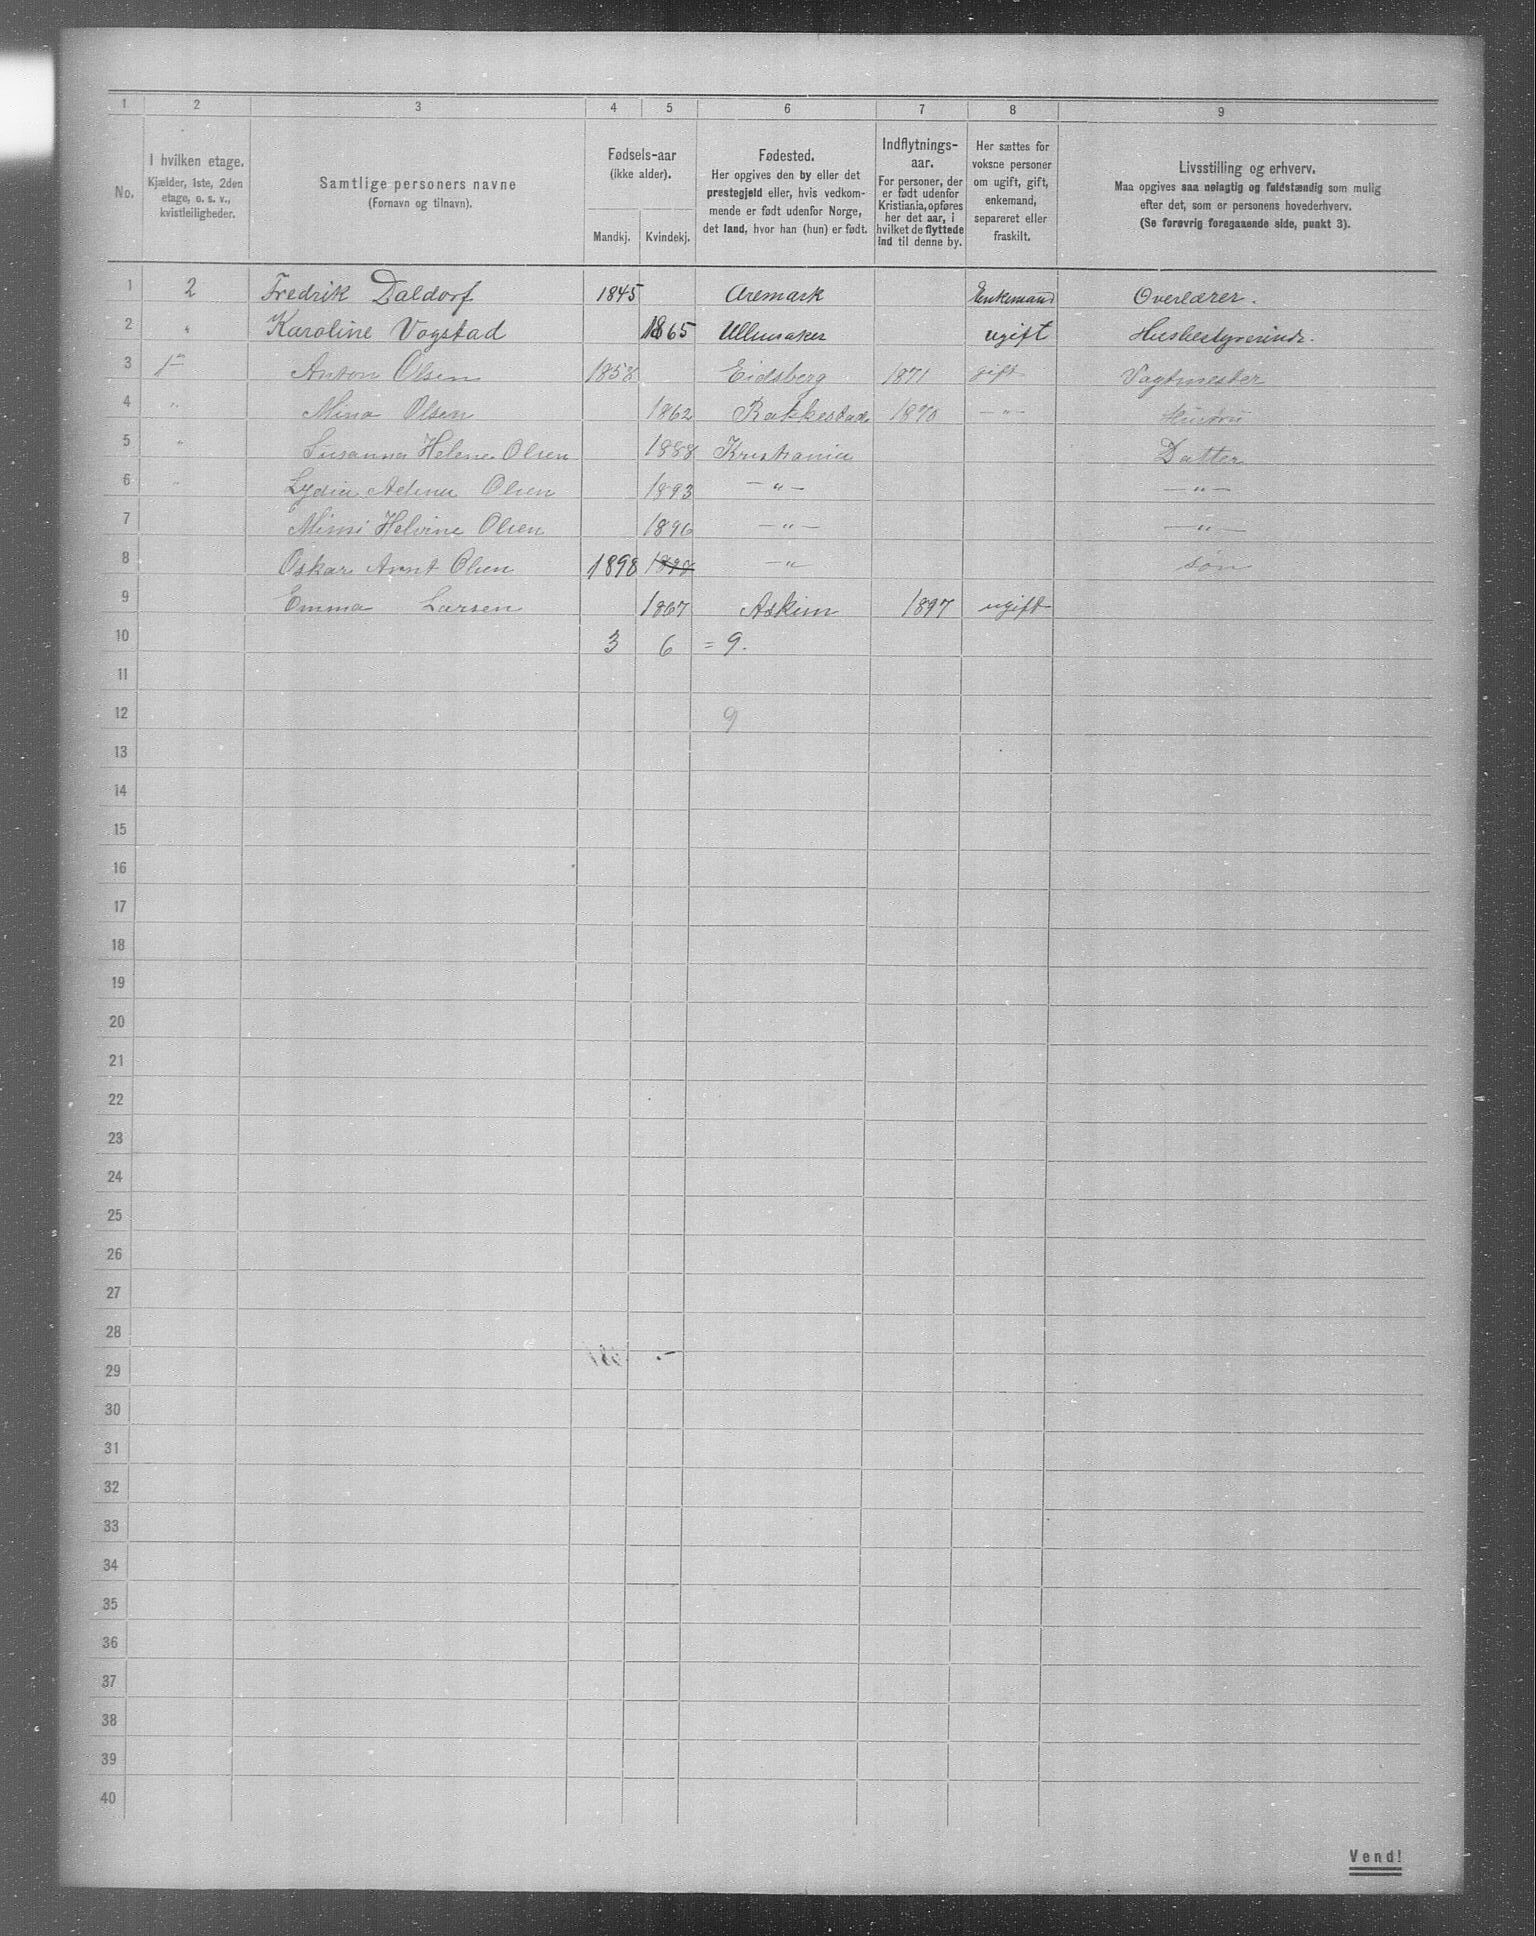 1 2 3 4 5 6 7 8 9
No.
I hvilken etage.
Kjælder, 1ste, 2den
etage, o. s. v.,
kvistleiligheder.
Samtlige personers navne
(Fornavn og tilnavn).
Fødsels-aar
(ikke alder).
Mandkj. Kvindekj.
Fødested.
Her opgives den by eller det
prestegjeld eller, hvis vedkom-
mende er født udenfor Norge,
det land, hvor han (hun) er født.
Indflytnings-
aar.
For personer, der
er født udenfor
Kristiania, opføres
her det aar, i
hvilket de flyttede
ind til denne by.
Her sættes for
voksne personer
om ugift, gift,
enkemand,
separeret eller
fraskilt.
Livsstilling og erhverv.
Maa opgives saa nøiagtig og fuldstændig som mulig
efter det, som er personens hovederhverv.
(Se forøvrig foregaaende side, punkt 3).
1 2 Fredrik Daldorf 1845 Aremark Enkemand Overlærer.
2 " Karoline Vogstad 1865 Ullensaker ugift Husbestyrerinde.
3 1 Anton Olsen 1858 Eidsberg 1871 gift Vagtmester
4 " Mina Olsen 1862 Rakkestad 1870 — " — Hustru
5 " Susanna Helene Olsen 1888 Kristiania Datter
6 " Lydia Adina Olsen 1893 — " — — " —
7 Mimi Helvine Olsen 1896 — " — — " —
8 Oskar Arnt Olsen 1898 1898 — " søn
9 Emma Larsen 1867 Askim 1897 ugift
10 3 6 = 9.
11
12 9
13
14
15
16
17
18
19
20
21
22
23
24
25
26
27
28
29
30
31
32
33
34
35
36
37
38
39
40
Vend!